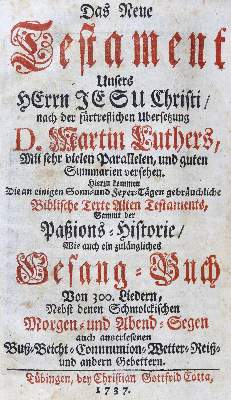 Das Neue
Testament
Unsers
HErrn JESU Christi/
nach der fürtreflichen Übersetzung
D. Martin Luthers,
Mit sehr vielen Parallelen, und guten
Summarien versehen.
Hierzu kommen
Die an einigen Sonn- und Feyer-Tägen gebräuchliche
Biblische Texte Alten Testaments,
Sammt der
Paßions-Historie/
Wie auch ein zulängliches
Gesang-Buch
Von 300. Liedern,
Nebst denen Schmolckischen
Morgen- und Abend-Segen
auch auserlesenen
Buß-Beicht-Communion-Wetter-Reiß-
und andern Gebettern.
Tübingen, bey Christian Gottfrid Cotta,
1737.